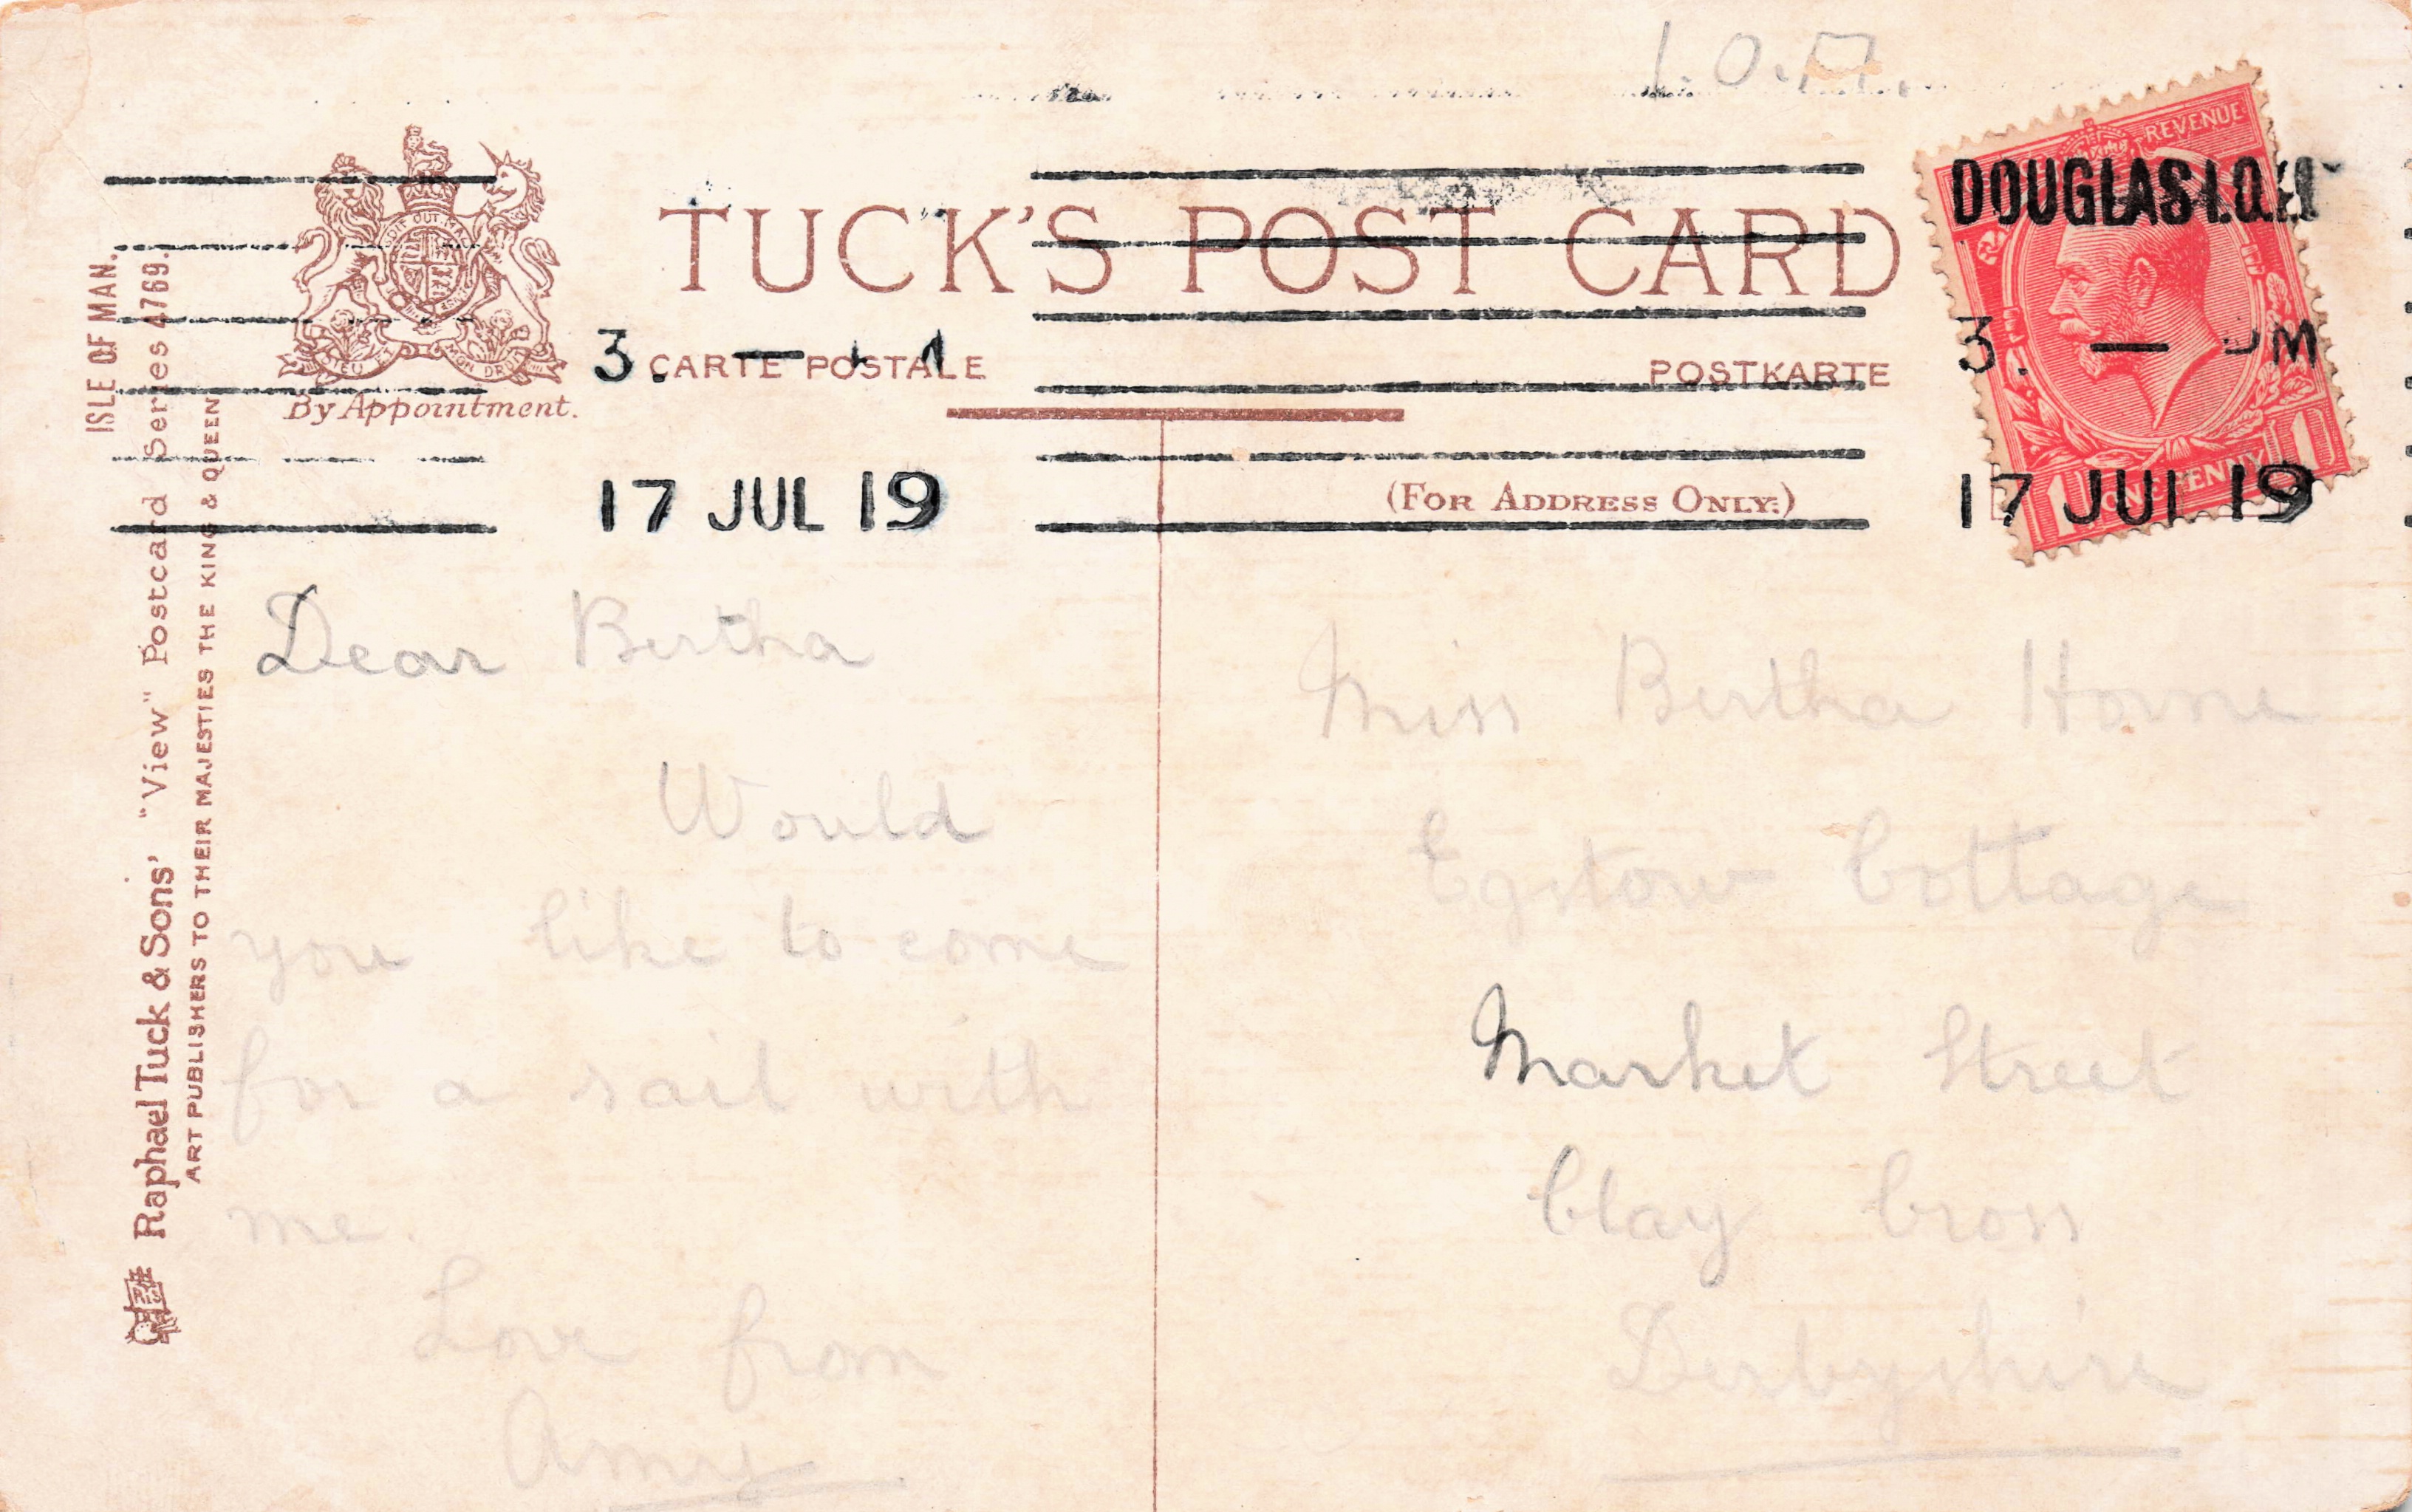 I.O.M.
TUCK'S POST CARD
CARTE POSTALE
POSTKARTE
By Appointment.
(FOR ADDRESS ONLY.)
REVENUE
ONE PENNY
DOUGLAS I.O.M
3. — PM
17 JUL 19
3. —
17 JUL 19
ISLE OF MAN.
Raphael Tuck & Sons' "View" Postcard Series 4769.
ART PUBLISHERS TO THEIR MAJESTIES THE KING & QUEEN
Dear Bertha
Would
you like to come
for a sail with
me.
Love from
Amy
Miss Bertha Horne
Egstow Cottage
Market Street
Clay Cross
Derbyshire